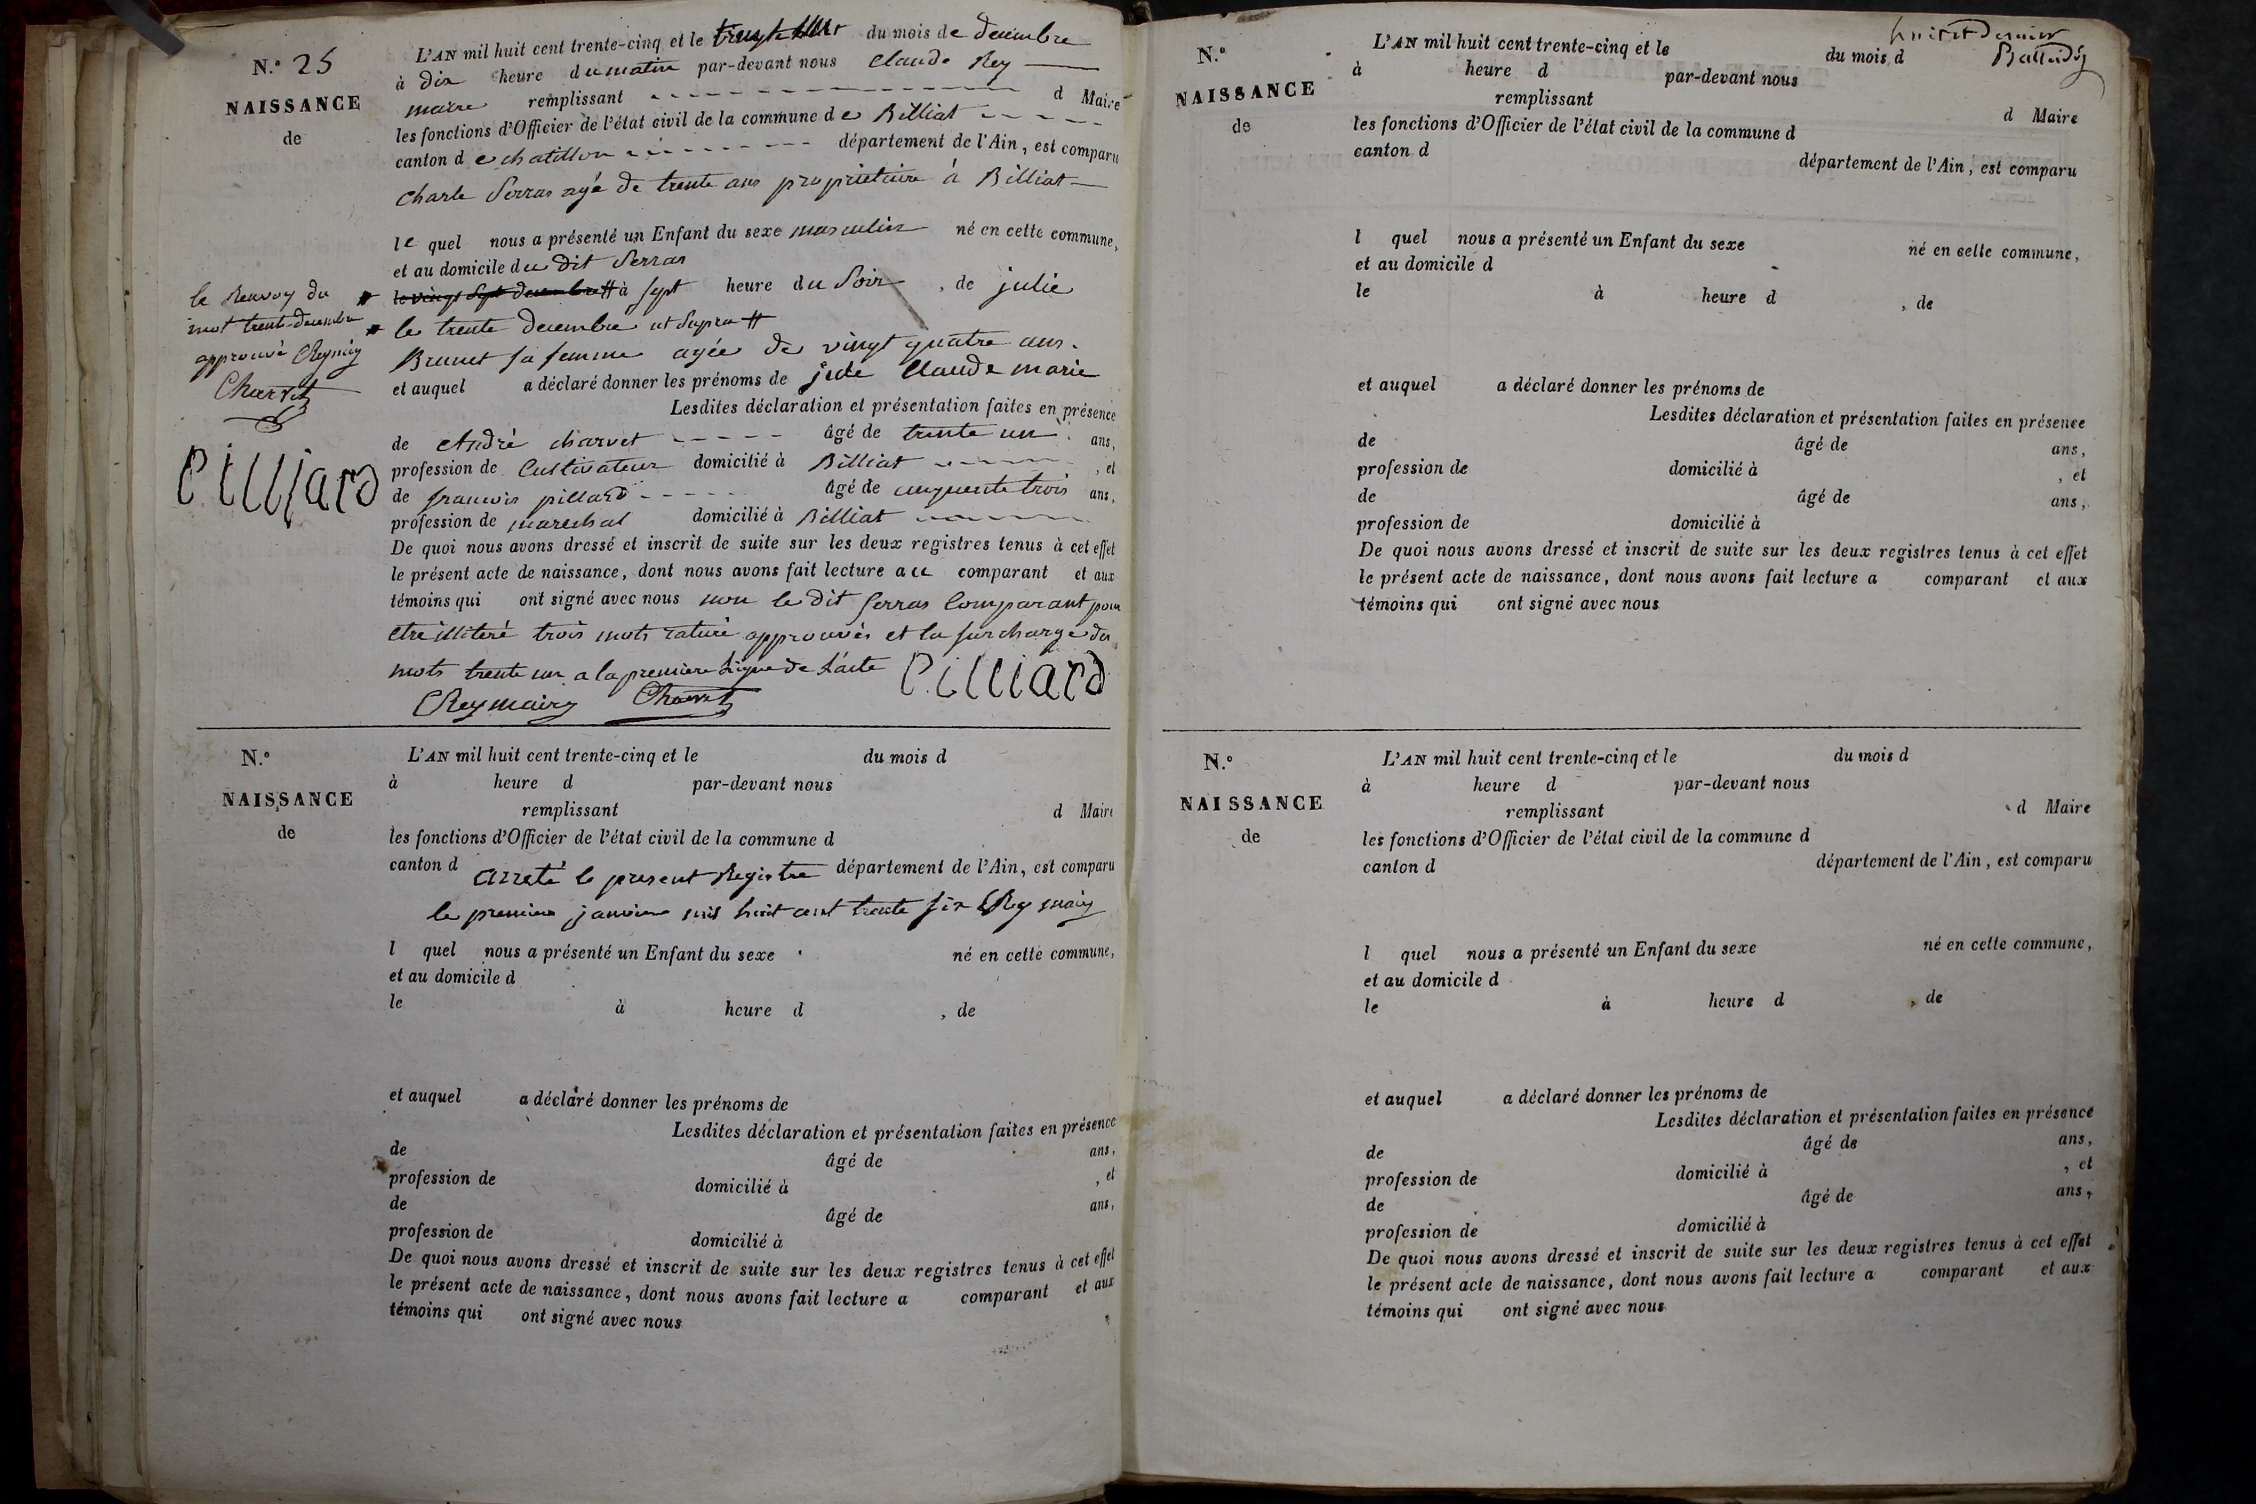 N.° 25
NAISSANCE
de
L'AN mil huit cent trente-cinq et le trente un du mois de decembre
à dix heure du matin par-devant nous Claude Rey
maire remplissant d Maire
les fonctions d'Officier de l'état civil de la commune de Billiat
canton de chatillon département de l'Ain, est comparu
Charle Serras agé de trente ans proprietaire à Billiat
le quel nous a présenté un Enfant du sexe masculin né en cette commune,
et au domicile du dit Serras
le vingt sept decembre # à sept heure du Soir, de julie
# le trente decembre ut supra #
Brunet sa femme agée de vingt quatre ans.
et auquel a déclaré donner les prénoms de jule Claude marie
Lesdites déclaration et présentation faites en présence
de André charvet âgé de trente un ans,
profession de Cultivateur domicilié à Billiat, et
de francois pillard âgé de cinquente trois ans,
profession de mareschal domicilié à Billiat
De quoi nous avons dressé et inscrit de suite sur les deux registres tenus à cet effet
le présent acte de naissance, dont nous avons fait lecture au comparant et aux
témoins qui ont signé avec nous non le dit serras Comparant pour
etre illiteré trois mots raturé approuvés et la surcharge des
mots trente un a la premiere Ligne de L'acte Pilliard
CRey maire Charvet
le Renvoy du
mot trente decembre
approuvé CRey maire
Charvet
Pilliard
N.°
NAISSANCE
de
L'AN mil huit cent trente-cinq et le du mois d
à heure d par-devant nous
remplissant d Maire
les fonctions d'Officier de l'état civil de la commune d
canton d département de l'Ain, est comparu
arreté le present Registre
le premier janvier mil huit cent trente six CRey maire
l quel nous a présenté un Enfant du sexe né en cette commune,
et au domicile d
le à heure d , de
et auquel a déclaré donner les prénoms de
Lesdites déclaration et présentation faites en présence
de âgé de ans,
profession de domicilié à , et
de âgé de ans,
profession de domicilié à
De quoi nous avons dressé et inscrit de suite sur les deux registres tenus à cet effet
le présent acte de naissance, dont nous avons fait lecture a comparant et aux
témoins qui ont signé avec nous
huit et dernier
N.°
NAISSANCE
de
L'AN mil huit cent trente-cinq et le du mois d
à heure d par-devant nous
remplissant d Maire
les fonctions d'Officier de l'état civil de la commune d
canton d département de l'Ain, est comparu
l quel nous a présenté un Enfant du sexe né en cette commune,
et au domicile d
le à heure d , de
et auquel a déclaré donner les prénoms de
Lesdites déclaration et présentation faites en présence
de âgé de ans,
profession de domicilié à , et
de âgé de ans,
profession de domicilié à
De quoi nous avons dressé et inscrit de suite sur les deux registres tenus à cet effet
le présent acte de naissance, dont nous avons fait lecture a comparant et aux
témoins qui ont signé avec nous
N.°
NAISSANCE
de
L'AN mil huit cent trente-cinq et le du mois d
à heure d par-devant nous
remplissant d Maire
les fonctions d'Officier de l'état civil de la commune d
canton d département de l'Ain, est comparu
l quel nous a présenté un Enfant du sexe né en cette commune,
et au domicile d
le à heure d , de
et auquel a déclaré donner les prénoms de
Lesdites déclaration et présentation faites en présence
de âgé de ans,
profession de domicilié à , et
de âgé de ans,
profession de domicilié à
De quoi nous avons dressé et inscrit de suite sur les deux registres tenus à cet effet
le présent acte de naissance, dont nous avons fait lecture a comparant et aux
témoins qui ont signé avec nous